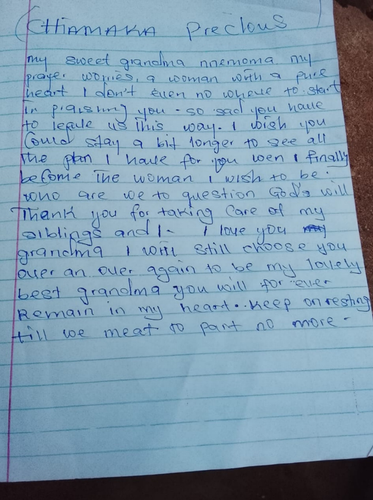 CHIAMAKA Precious
my sweet grandma nnemoma my
prayer worries, a woman with a pure
heart I don't even no where to start
in praising you. so sad you have
to leave us this way. I wish you
Could stay a bit longer to see all
the plan I have for you wen I finally
become the woman I wish to be.
who are we to question God's will
Thank you for taking care of my
siblings and I. I love you
grandma I will still choose you
over an over again to be my lovely
best grandma you will for ever
Remain in my heart. Keep on resting
till we meat to part no more.